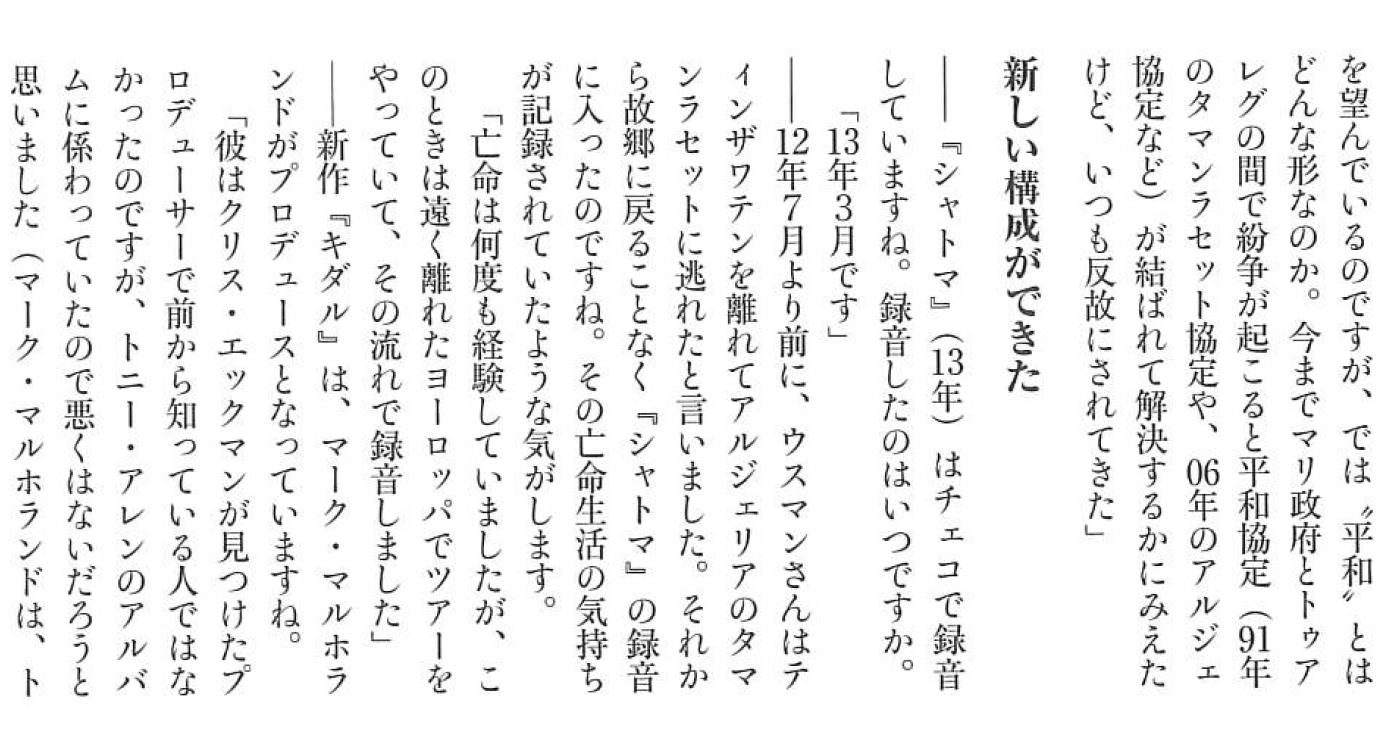 を望んでいるのですが、では〝平和〟とは
どんな形なのか。今までマリ政府とトゥア
レグの間で紛争が起こると平和協定（91年
のタマンラセット協定や、06年のアルジェ
協定など）が結ばれて解決するかにみえた
けど、いつも反故にされてきた」
新しい構成ができた
――『シャトマ』（13年）はチェコで録音
していますね。録音したのはいつですか。
「13年３月です」
――12年７月より前に、ウスマンさんはテ
ィンザワテンを離れてアルジェリアのタマ
ンラセットに逃れたと言いました。それか
ら故郷に戻ることなく『シャトマ』の録音
に入ったのですね。その亡命生活の気持ち
が記録されていたような気がします。
「亡命は何度も経験していましたが、こ
のときは遠く離れたヨーロッパでツアーを
やっていて、その流れで録音しました」
――新作『キダル』は、マーク・マルホラ
ンドがプロデュースとなっていますね。
「彼はクリス・エックマンが見つけたプ
ロデューサーで前から知っている人ではな
かったのですが、トニー・アレンのアルバ
ムに係わっていたので悪くはないだろうと
思いました（マーク・マルホランドは、ト